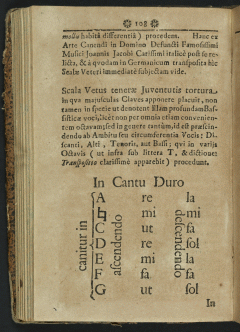 108
modo habitâ differentiâ) procedem. Hanc ex
Arte Canendi in Domino Defuncti Famosissimi
Musici Joannis Jacobi Carissimi italicè post se re-
licta, & à quodam in Germanicum transposita hic
Scalæ Veteri immediatè subjectam vide.
Scala Vetus teneræ Juventutis tortura,
In qva majusculas Claves apponere placuit, non
tamen in specie ut denotent
octavam, sed in genere tantùm, id est præscin-
dendo ab Ambitu seu circumferentia Vocis: Di-
scanti, Alti, Tenoris, aut Bassi; qui in variis
Octavis (ut infra sub littera T, & dictione
Transpositio clarissimè apparebit) procedunt.
In Cantu Duro
canitur in
ascendendo
descendendo
A re la
♮ mi mi
C ut fa
D re sol
E mi la
F fa fa
G ut sol
In